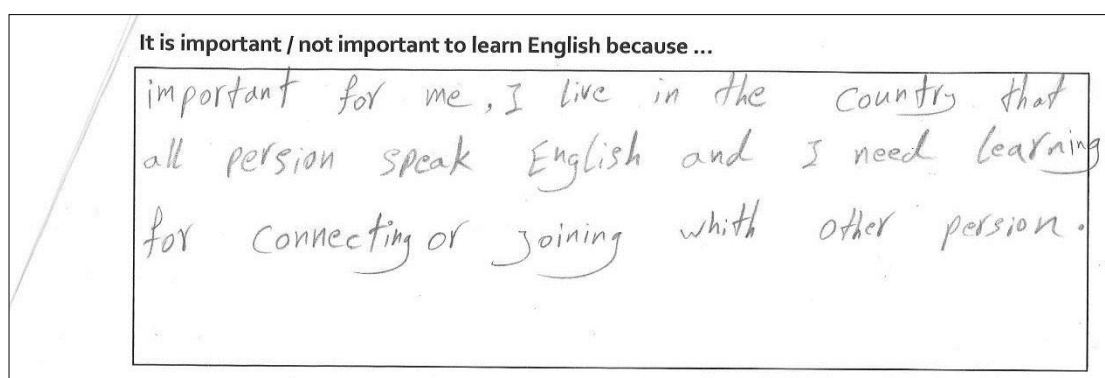 It is important / not important to learn English because ...
important for me, I live in the country that
all persion speak English and I need learning
for connecting or joining whith other persion.